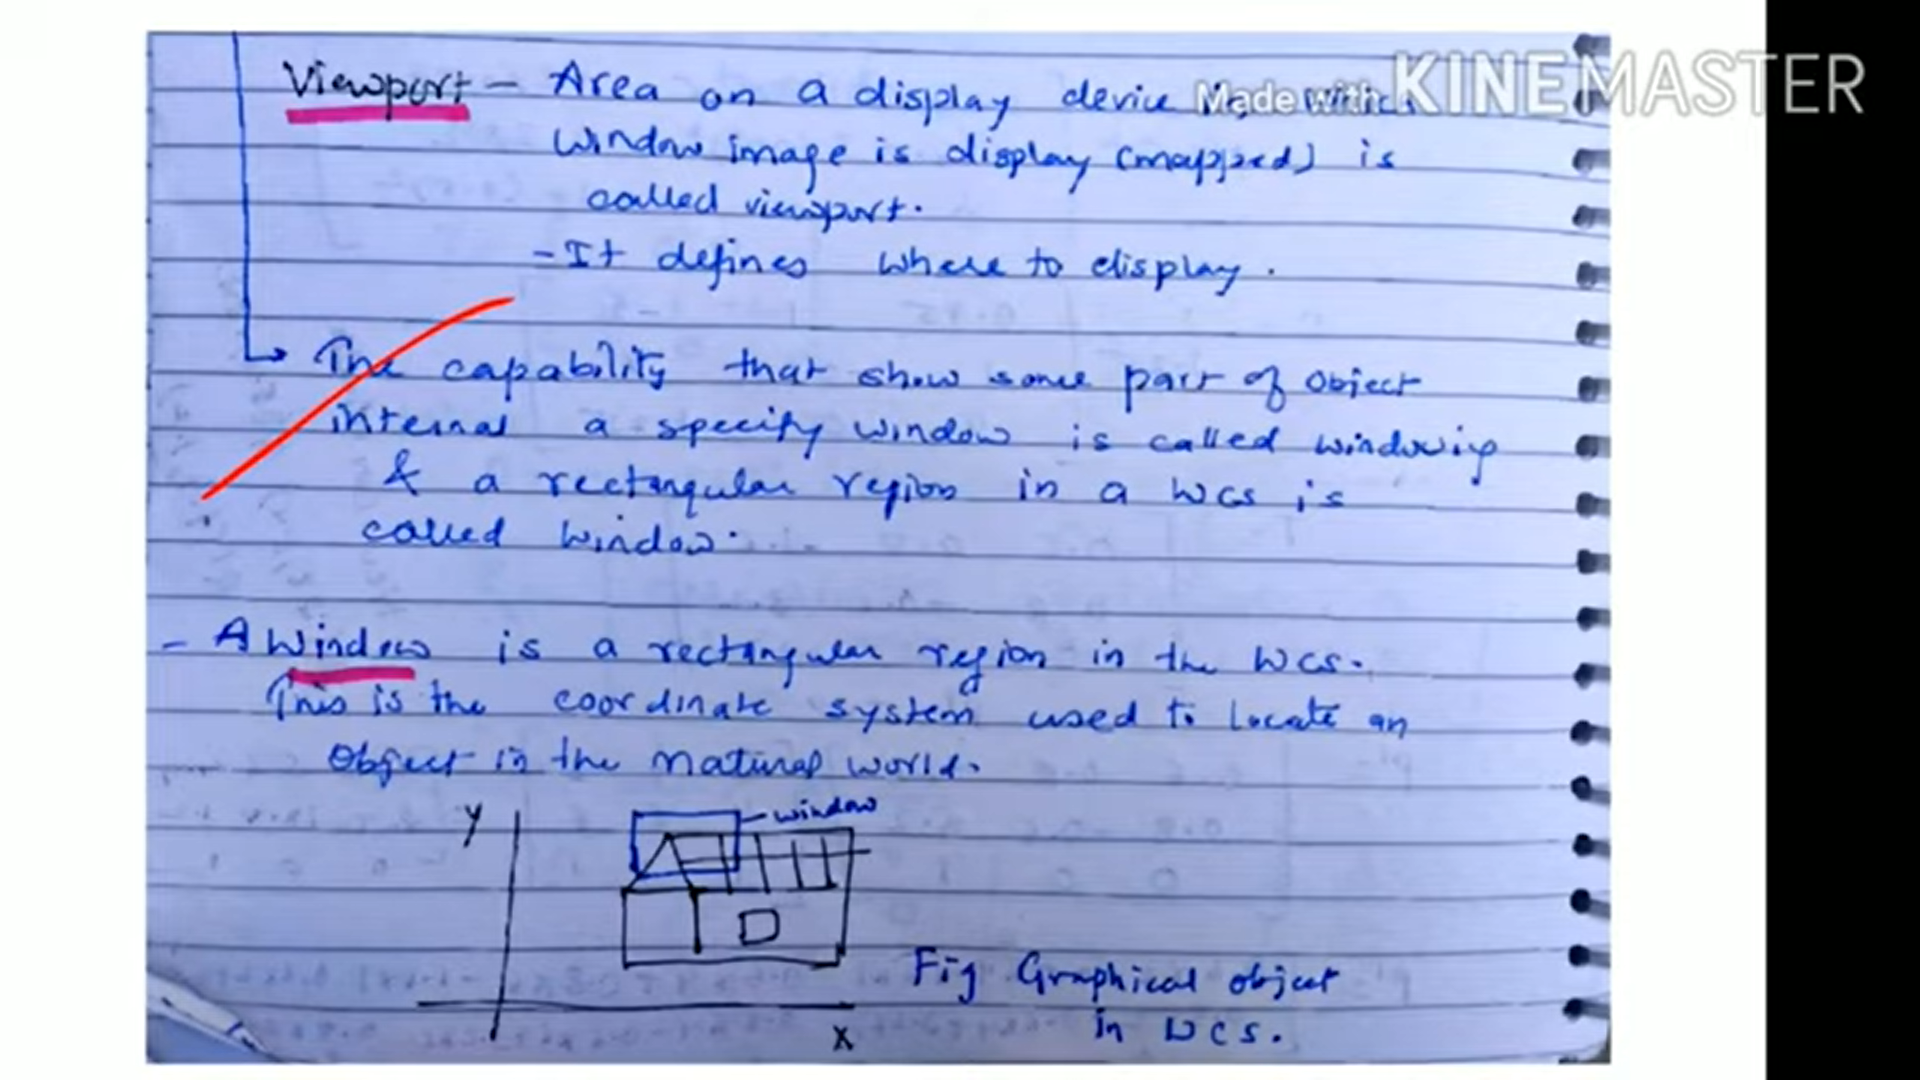 Viewport - Area on a display device
Made with KINEMASTER
window image is display (mapped) is
called viewport.
- It defines where to display.
The capability that show some part of object
internal a specify window is called windowing
& a rectangular region in a WCS is
called window.
- A Window is a rectangular region in the WCS.
This is the coordinate system used to Locate an
Object in the natural world.
Y
window
Fig Graphical object
in WCS.
X